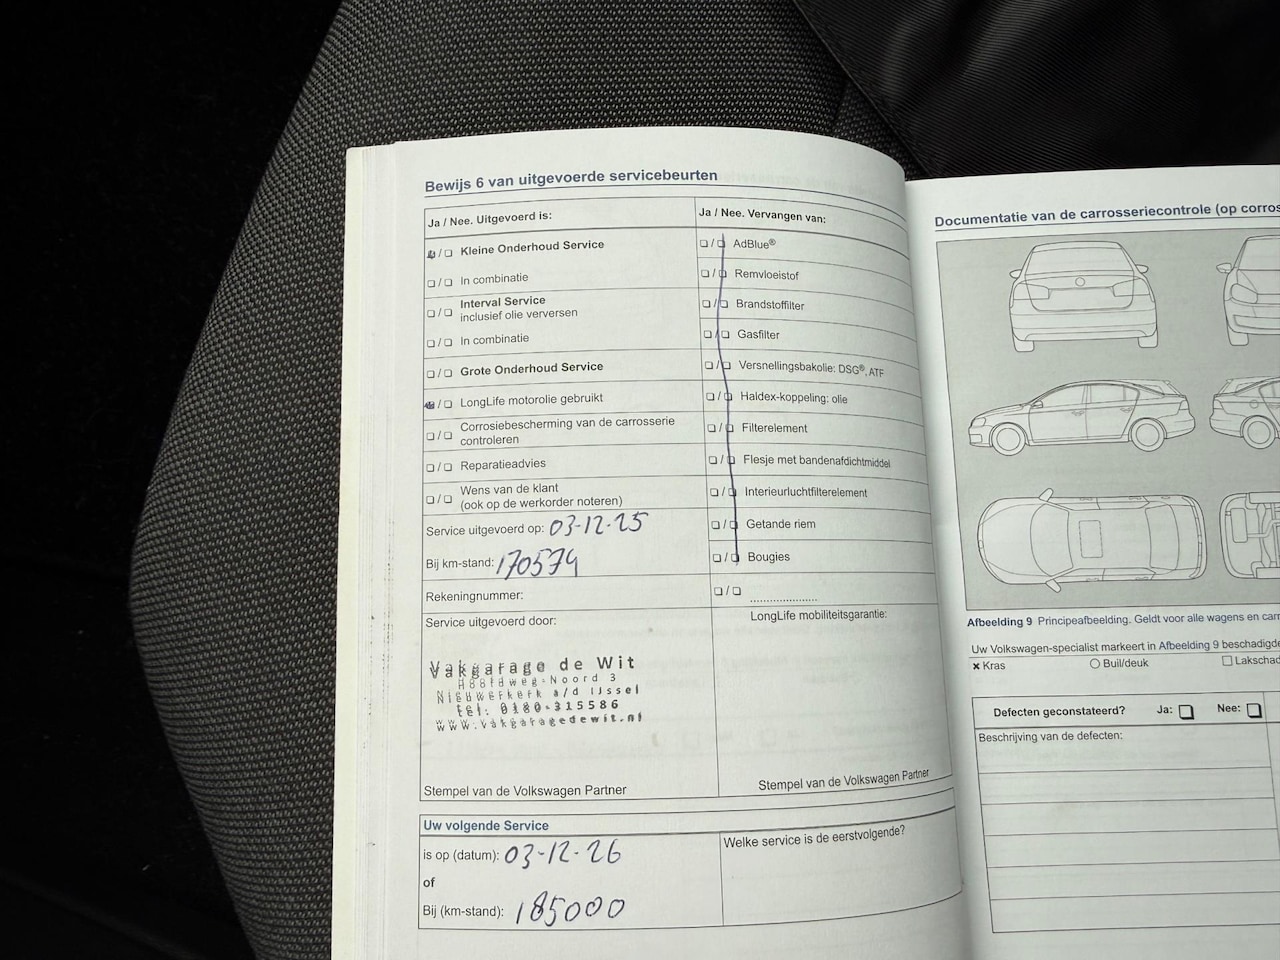 Bewijs 6 van uitgevoerde servicebeurten
Ja / Nee. Uitgevoerd is:
Kleine Onderhoud Service
In combinatie
Interval Service
inclusief olie verversen
In combinatie
Grote Onderhoud Service
LongLife motorolie gebruikt
Corrosiebescherming van de carrosserie
controleren
Reparatieadvies
Wens van de klant
(ook op de werkorder noteren)
Service uitgevoerd op: 03-12-25
Bij km-stand: 170574
Rekeningnummer:
Service uitgevoerd door:
Vakgarage de Wit
Hoofdweg-Noord 3
Nieuwerkerk a/d IJssel
tel. 0180-315586
www.vakgaragedewit.nl
Stempel van de Volkswagen Partner
Ja / Nee. Vervangen van:
AdBlue®
Remvloeistof
Brandstoffilter
Gasfilter
Versnellingsbakolie: DSG®, ATF
Haldex-koppeling: olie
Filterelement
Flesje met bandenafdichtmiddel
Interieurluchtfilterelement
Getande riem
Bougies
LongLife mobiliteitsgarantie:
Stempel van de Volkswagen Partner
Uw volgende Service
is op (datum): 03-12-26
of
Bij (km-stand): 185000
Welke service is de eerstvolgende?
Documentatie van de carrosseriecontrole (op corros
Afbeelding 9 Principeafbeelding. Geldt voor alle wagens en carr
Uw Volkswagen-specialist markeert in Afbeelding 9 beschadigde
Kras Buil/deuk Lakschad
Defecten geconstateerd? Ja: Nee:
Beschrijving van de defecten: